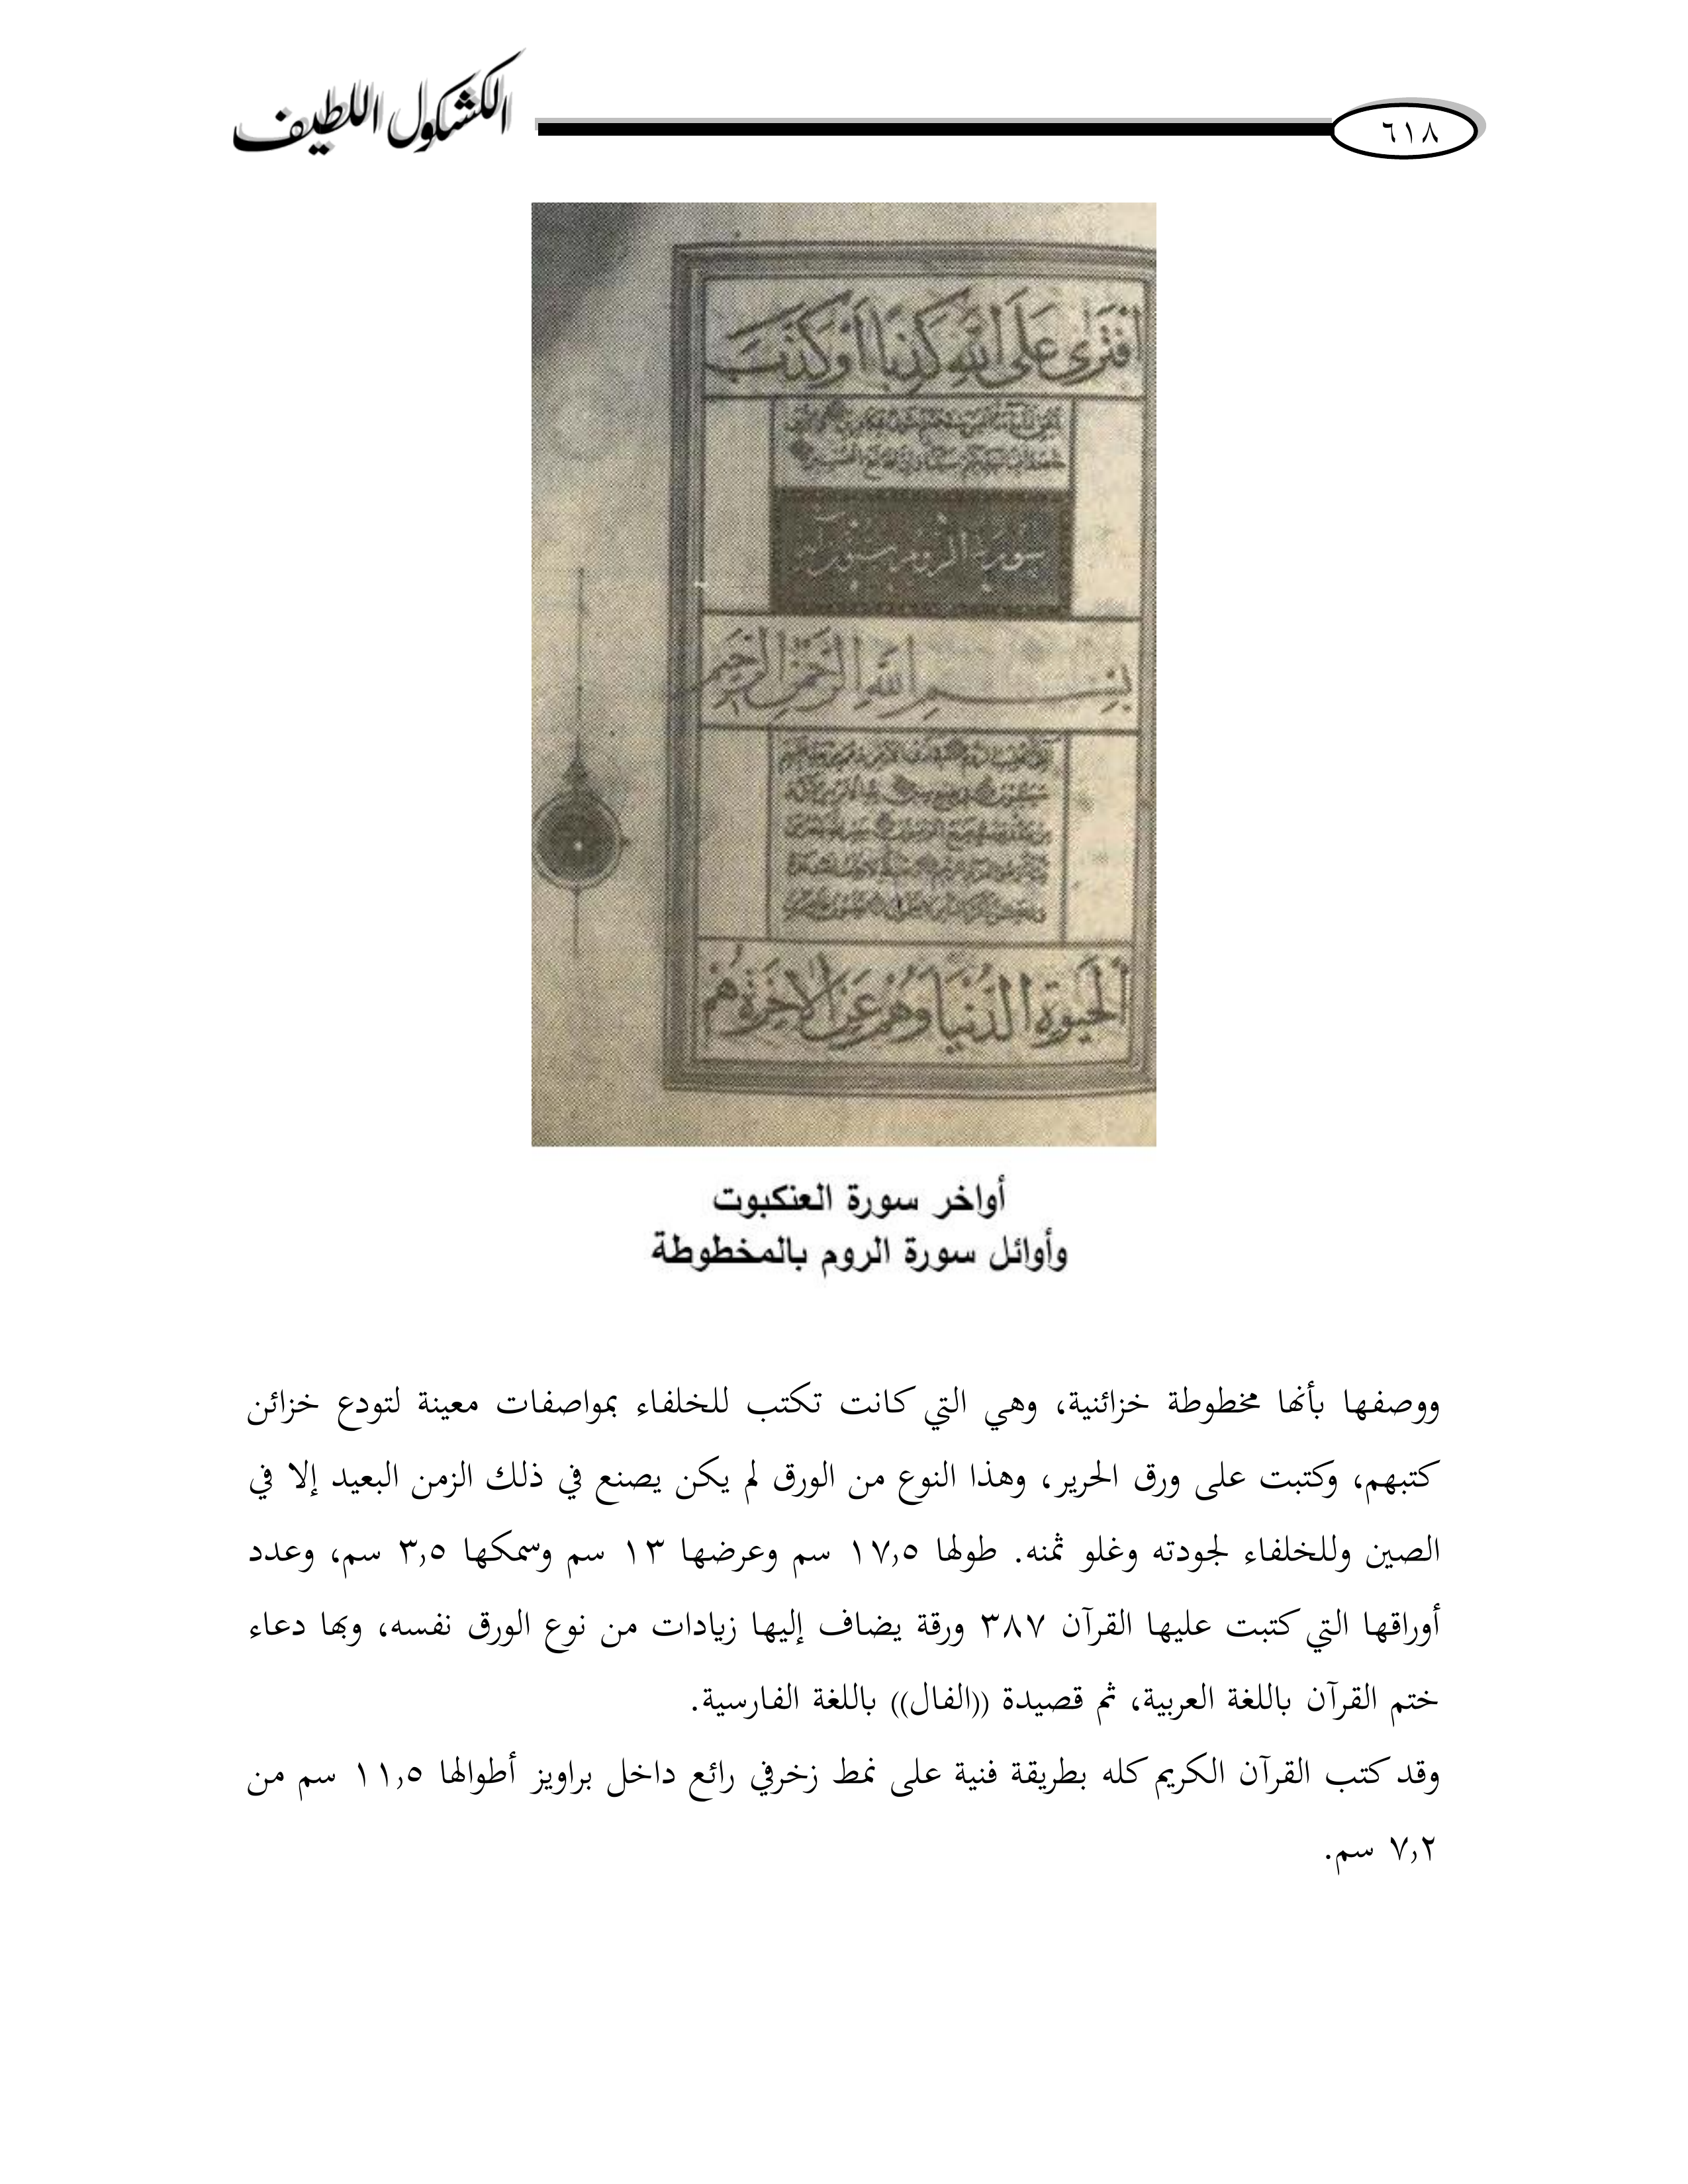 ٦١٨
الكشكول اللطيف
أفترى على الله كذبا أو كذب
سورة الروم ستون آية
بسم الله الرحمن الرحيم
الحيوة الدنيا وهم عن الآخرة هم
أواخر سورة العنكبوت
وأوائل سورة الروم بالمخطوطة
ووصفها بأنها مخطوطة خزائنية، وهي التي كانت تكتب للخلفاء بمواصفات معينة لتودع خزائن
كتبهم، وكتبت على ورق الحرير، وهذا النوع من الورق لم يكن يصنع في ذلك الزمن البعيد إلا في
الصين وللخلفاء لجودته وغلو ثمنه. طولها ١٧,٥ سم وعرضها ١٣ سم وسمكها ٣,٥ سم، وعدد
أوراقها التي كتبت عليها القرآن ٣٨٧ ورقة يضاف إليها زيادات من نوع الورق نفسه، وبها دعاء
ختم القرآن باللغة العربية، ثم قصيدة ((الفال)) باللغة الفارسية.
وقد كتب القرآن الكريم كله بطريقة فنية على نمط زخرفي رائع داخل براويز أطوالها ١١,٥ سم من
٧,٢ سم.